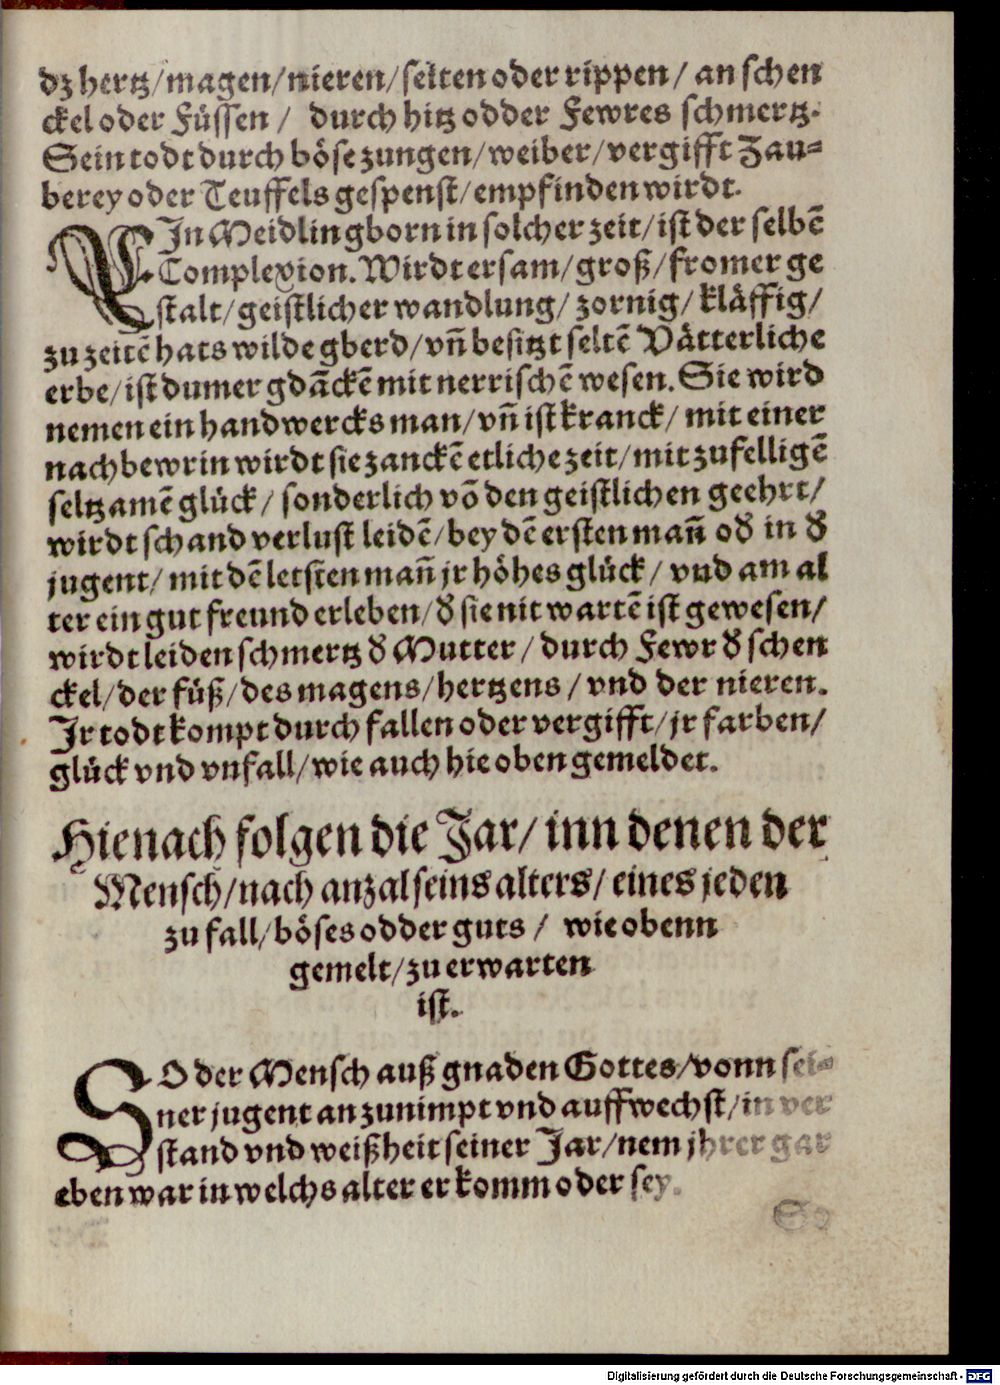 dz hertz/magen/nieren/seiten oder rippen/ an schen
ckel oder Füssen / durch hitz odder Fewres schmertz.
Sein todt durch böse zungen/weiber/vergifft Zau-
berey oder Teuffels gespenst/empfinden wirdt.
EIn Meidlin gborn in solcher zeit/ist der selbẽ
Complexion. Wirdt ersam/groß/fromer ge
stalt/geistlicher wandlung/ zornig/ kläffig/
zu zeitẽ hats wilde gberd/vñ besitzt seltẽ Vätterliche
erbe/ist dumer gdãckẽ mit nerrischẽ wesen. Sie wird
nemen ein handwercks man/vñ ist kranck/ mit einer
nachbewrin wirdt sie zanckẽ etliche zeit/mit zufelligẽ
seltzamẽ glück/ sonderlich võ den geistlichen geehrt/
wirdt schand verlust leidẽ/bey dẽ ersten mañ od in d
jugent/ mit dẽ letsten mañ jr höhes glück/ vnd am al
ter ein gut freund erleben/d sie nit wartẽ ist gewesen/
wirdt leiden schmertz d Mutter/ durch Fewr d schen
ckel/der füß/des magens/hertzens / vnd der nieren.
Ir todt kompt durch fallen oder vergifft/jr farben/
glück vnd vnfall/wie auch hie oben gemeldet.
Hienach folgen die Jar/ inn denen der
Mensch/nach anzal seins alters/ eines jeden
zu fall/böses odder guts / wie obenn
gemelt/zu erwarten
ist.
SO der Mensch auß gnaden Gottes/vonn sei-
ner jugent an zunimpt vnd auffwechst/in ver
stand vnd weißheit seiner Jar/nem jhrer gar
eben war in welchs alter er komm oder sey.
So
Digitalisierung gefördert durch die Deutsche Forschungsgemeinschaft - DFG